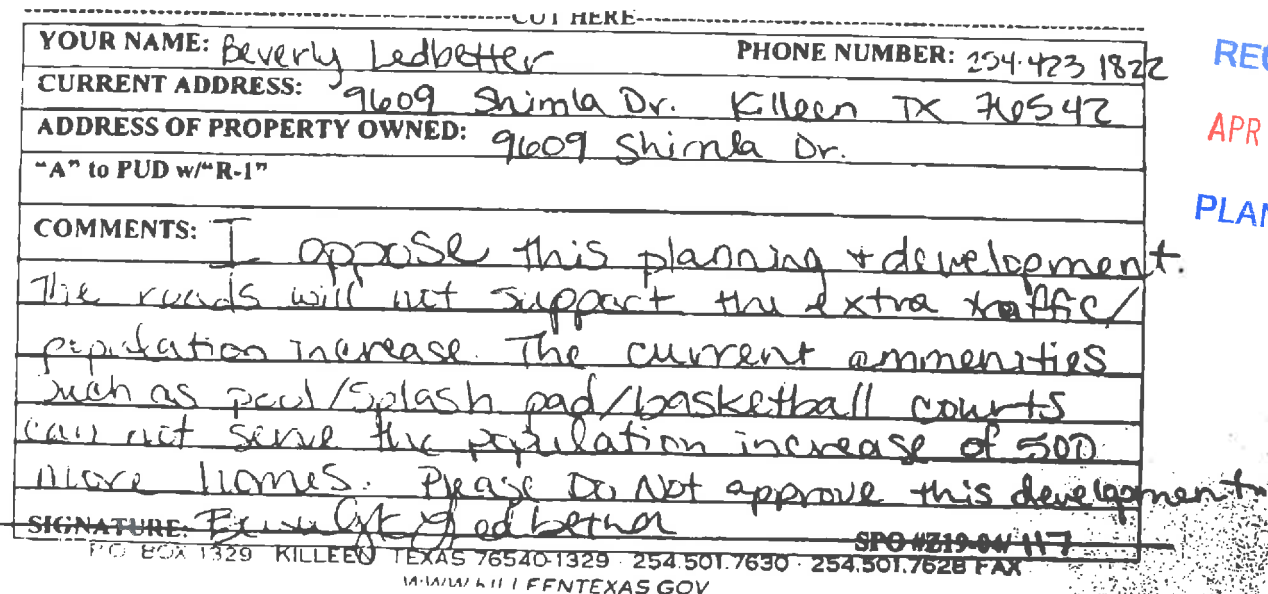 CUT HERE
YOUR NAME: Beverly Ledbetter PHONE NUMBER: 254.423 1822
CURRENT ADDRESS: 9609 Shimla Dr. Killeen TX 76542
ADDRESS OF PROPERTY OWNED: 9609 Shimla Dr.
"A" to PUD w/"R-1"
COMMENTS: I oppose this planning + development.
The roads will not support the extra traffic/
population increase. The current ammenities
such as pool/splash pad/basketball courts
can not serve the population increase of 500
more homes. Please Do Not approve this development
SIGNATURE: Ledbetter
SPO #Z19-04/ 117
P.O. BOX 1329 KILLEEN TEXAS 76540-1329 · 254.501.7630 · 254.501.7628 FAX
WWW.KILLEENTEXAS.GOV
APR